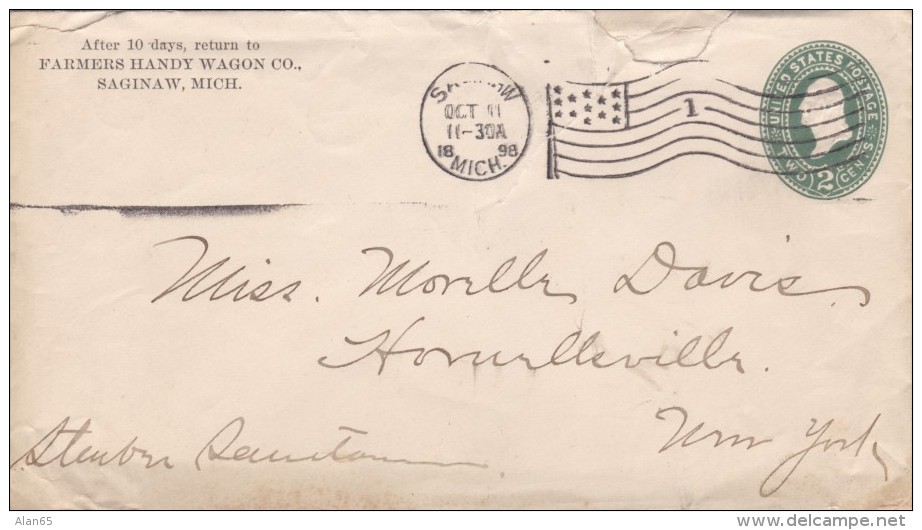 After 10 days, return to
FARMERS HANDY WAGON CO.,
SAGINAW, MICH.
SAGINAW
OCT 11
11-30A
18 98
MICH.
1
UNITED STATES POSTAGE
TWO 2 CENTS
Miss. Morelle Davis
Hornellsville.
New York
Steuben
Alan65
www.delcampe.net